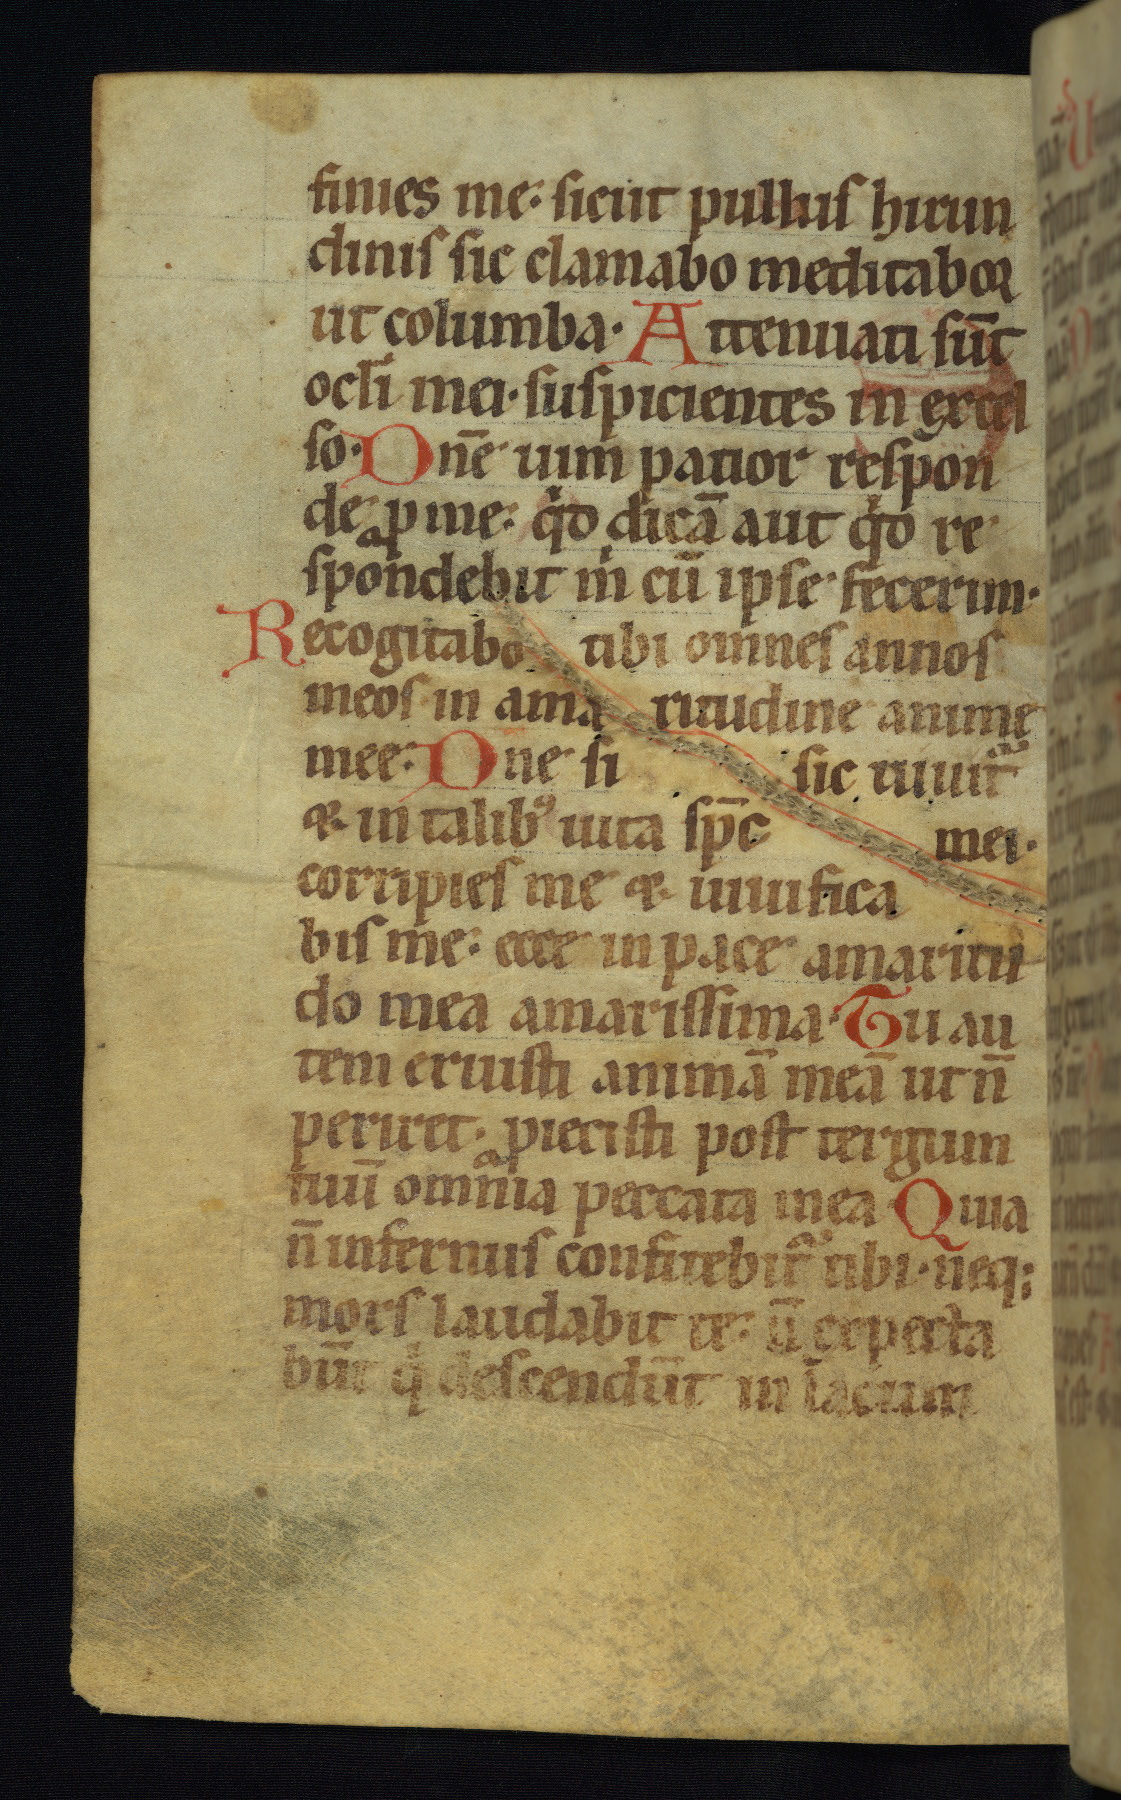 finies me· sicut pullus hirun
dinis sic clamabo meditabor
ut columba· Attenuati sūt
ocłi mei· suspicientes in excel
so· Dn̄e uim patior respon
de ꝓ me· qͥd dicā aut qͥd re
spondebit mͥ cū ipse fecerim·
Recogitabo tibi omnes annos
meos in ama ritudine anime
mee· Dne si sic uiuit᷑
⁊ in talibꝰ uita sp̄c mei·
corripies me ⁊ uiuifica
bis me· ecce in pace amaritu
do mea amarissima· Tu au
tem eruisti animā meā ut n̄
periret· ꝓiecisti post tergum
tuū omnia peccata mea Quia
n̄ infernus confitebit᷑ tibi· neq;
mors laudabit te· n̄ expecta
būt qͥ descendūt in lacum